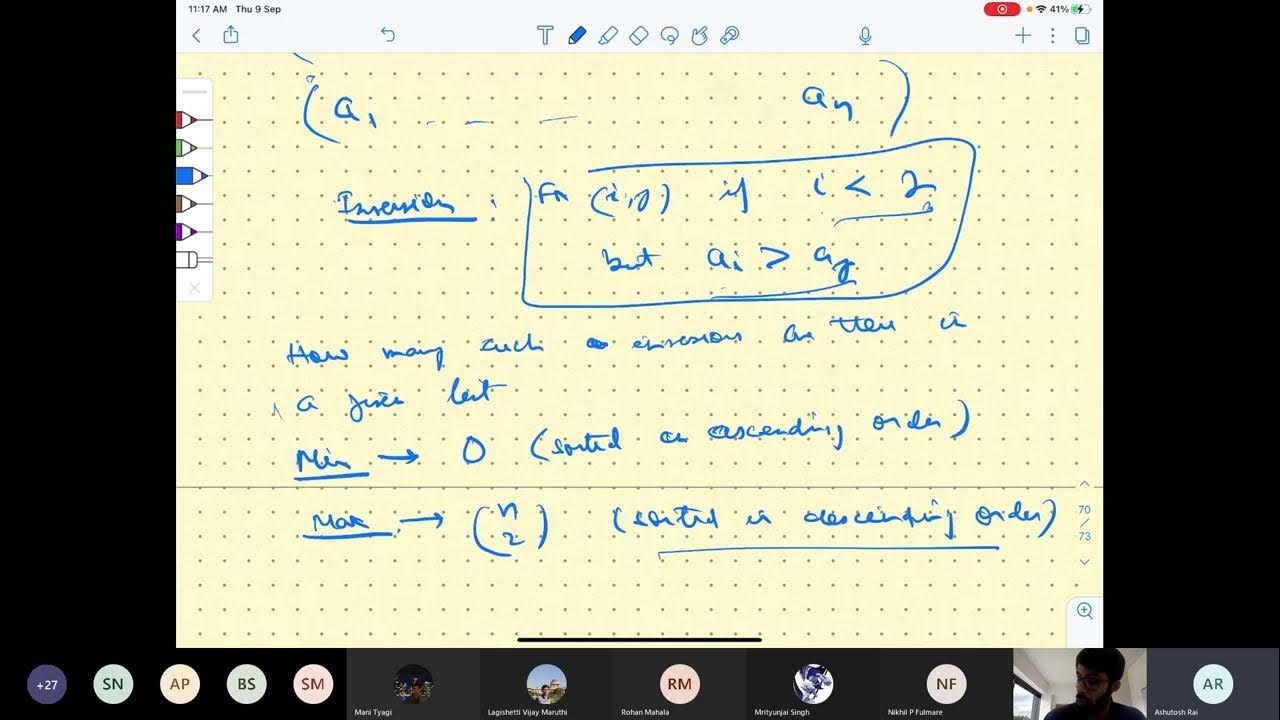 11:17 AM Thu 9 Sep
41%
T
(a₁ - - - - aₙ)
Inversion : For (i,j) if i < j
but aᵢ > aⱼ
How many such inversions are there in
a given list
Min → 0 (sorted in ascending order)
Max → (n 2) (sorted in descending order)
70
/
73
+27
SN
AP
BS
SM
Mani Tyagi
Lagishetti Vijay Maruthi
RM
Rohan Mahala
Mrityunjai Singh
NF
Nikhil P Fulmare
AR
Ashutosh Rai